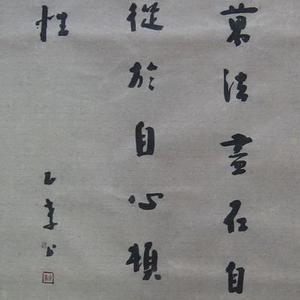 萬法盡在自
從於自心頓
性